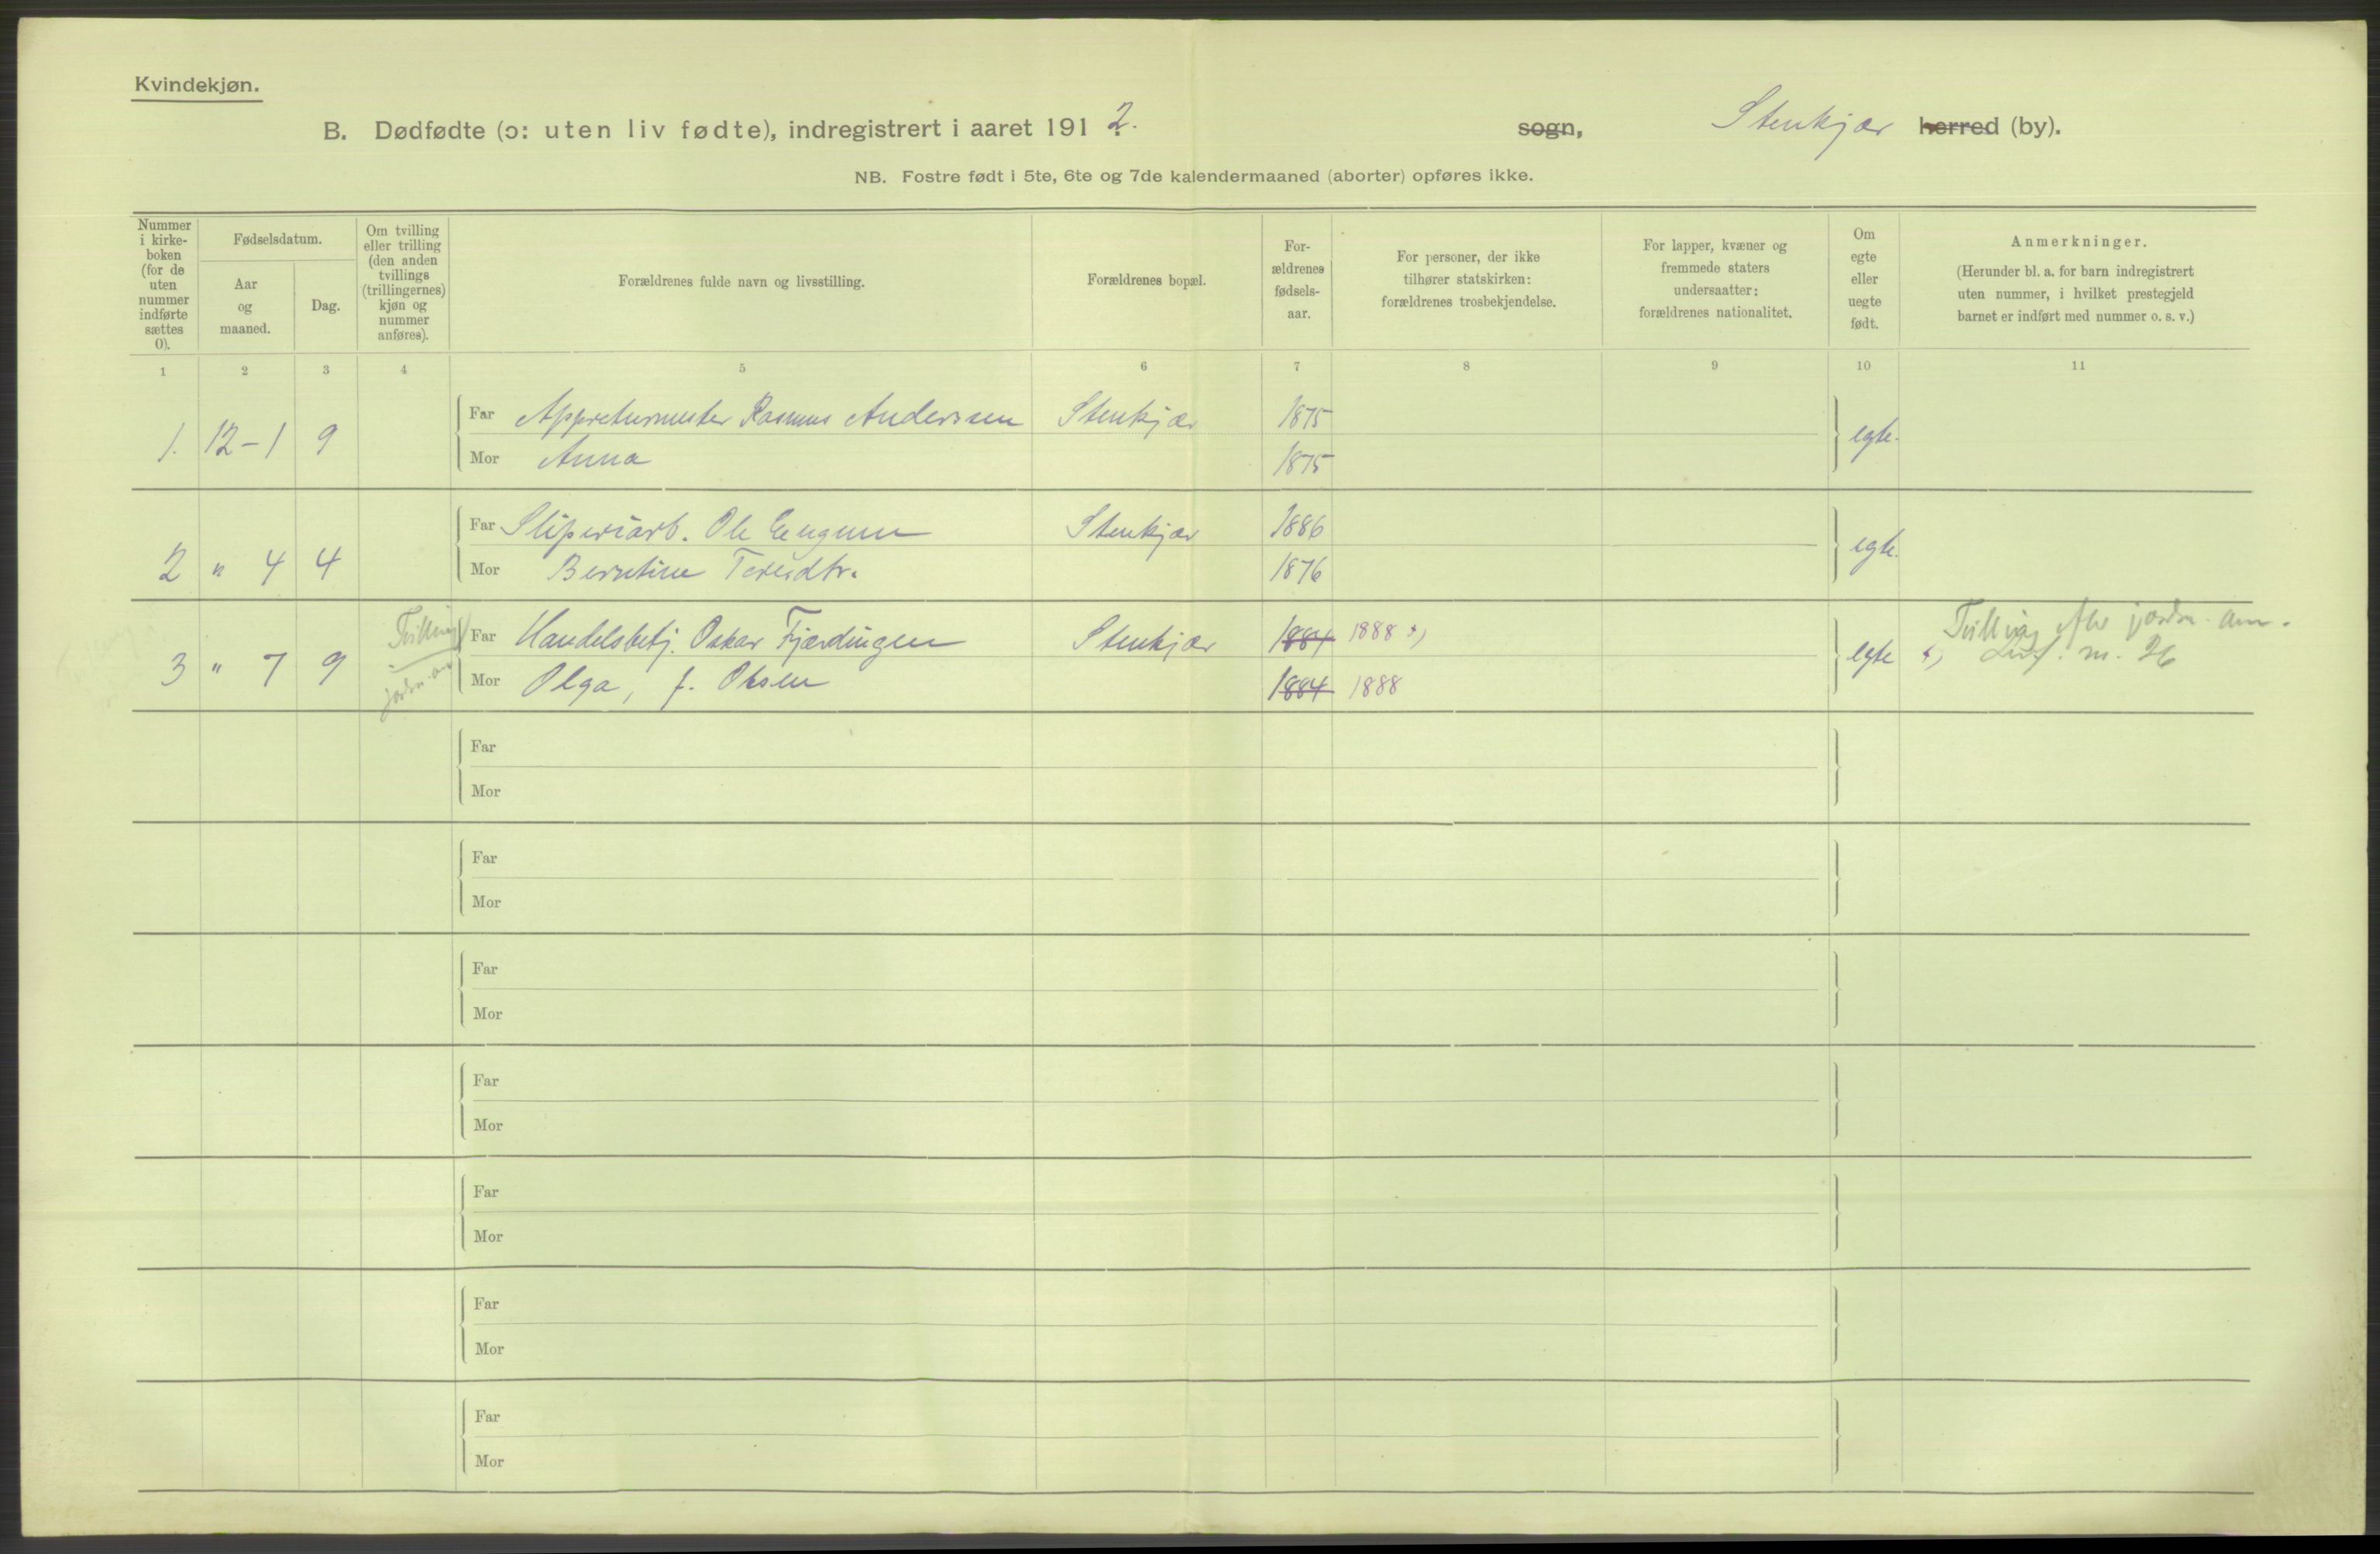 Kvindekjøn.
B. Dødfødte (ɔ: uten liv fødte), indregistrert i aaret 1912.
sogn, Stenkjær herred (by).
NB. Fostre født i 5te, 6te og 7de kalendermaaned (aborter) opføres ikke.
Nummer
i kirke-
boken
(for de
uten
nummer
indførte
sættes
0).
Fødselsdatum.
Aar
og
maaned.
Dag.
Om tvilling
eller trilling
(den anden
tvillings
(trillingernes)
kjøn og
nummer
anføres).
Forældrenes fulde navn og livsstilling.
Forældrenes bopæl.
For-
ældrenes
fødsels-
aar.
For personer, der ikke
tilhører statskirken:
forældrenes trosbekjendelse.
For lapper, kvæner og
fremmede staters
undersaatter:
forældrenes nationalitet.
Om
egte
eller
uegte
født.
Anmerkninger.
(Herunder bl. a. for barn indregistrert
uten nummer, i hvilket prestegjeld
barnet er indført med nummer o. s. v.)
1 2 3 4 5 6 7 8 9 10 11
Far Appreturmester Rasmus Anderssen Stenkjær 1875
1. 12-1 9 egte.
Mor Anna 1875
Far Sliperiarb. Ole Stenkjær 1886
2 " 4 4 egte.
Mor Berntine 1876
Tvilling
Far Handelsbetj. Oskar Fjerdingen Stenkjær 1884 1888 *)
3 " 7 9 egte
Mor Olga, f. Olsen 1884 1888
Tvilling jordm. anm.
*) m. 26
Far
Mor
Far
Mor
Far
Mor
Far
Mor
Far
Mor
Far
Mor
Far
Mor